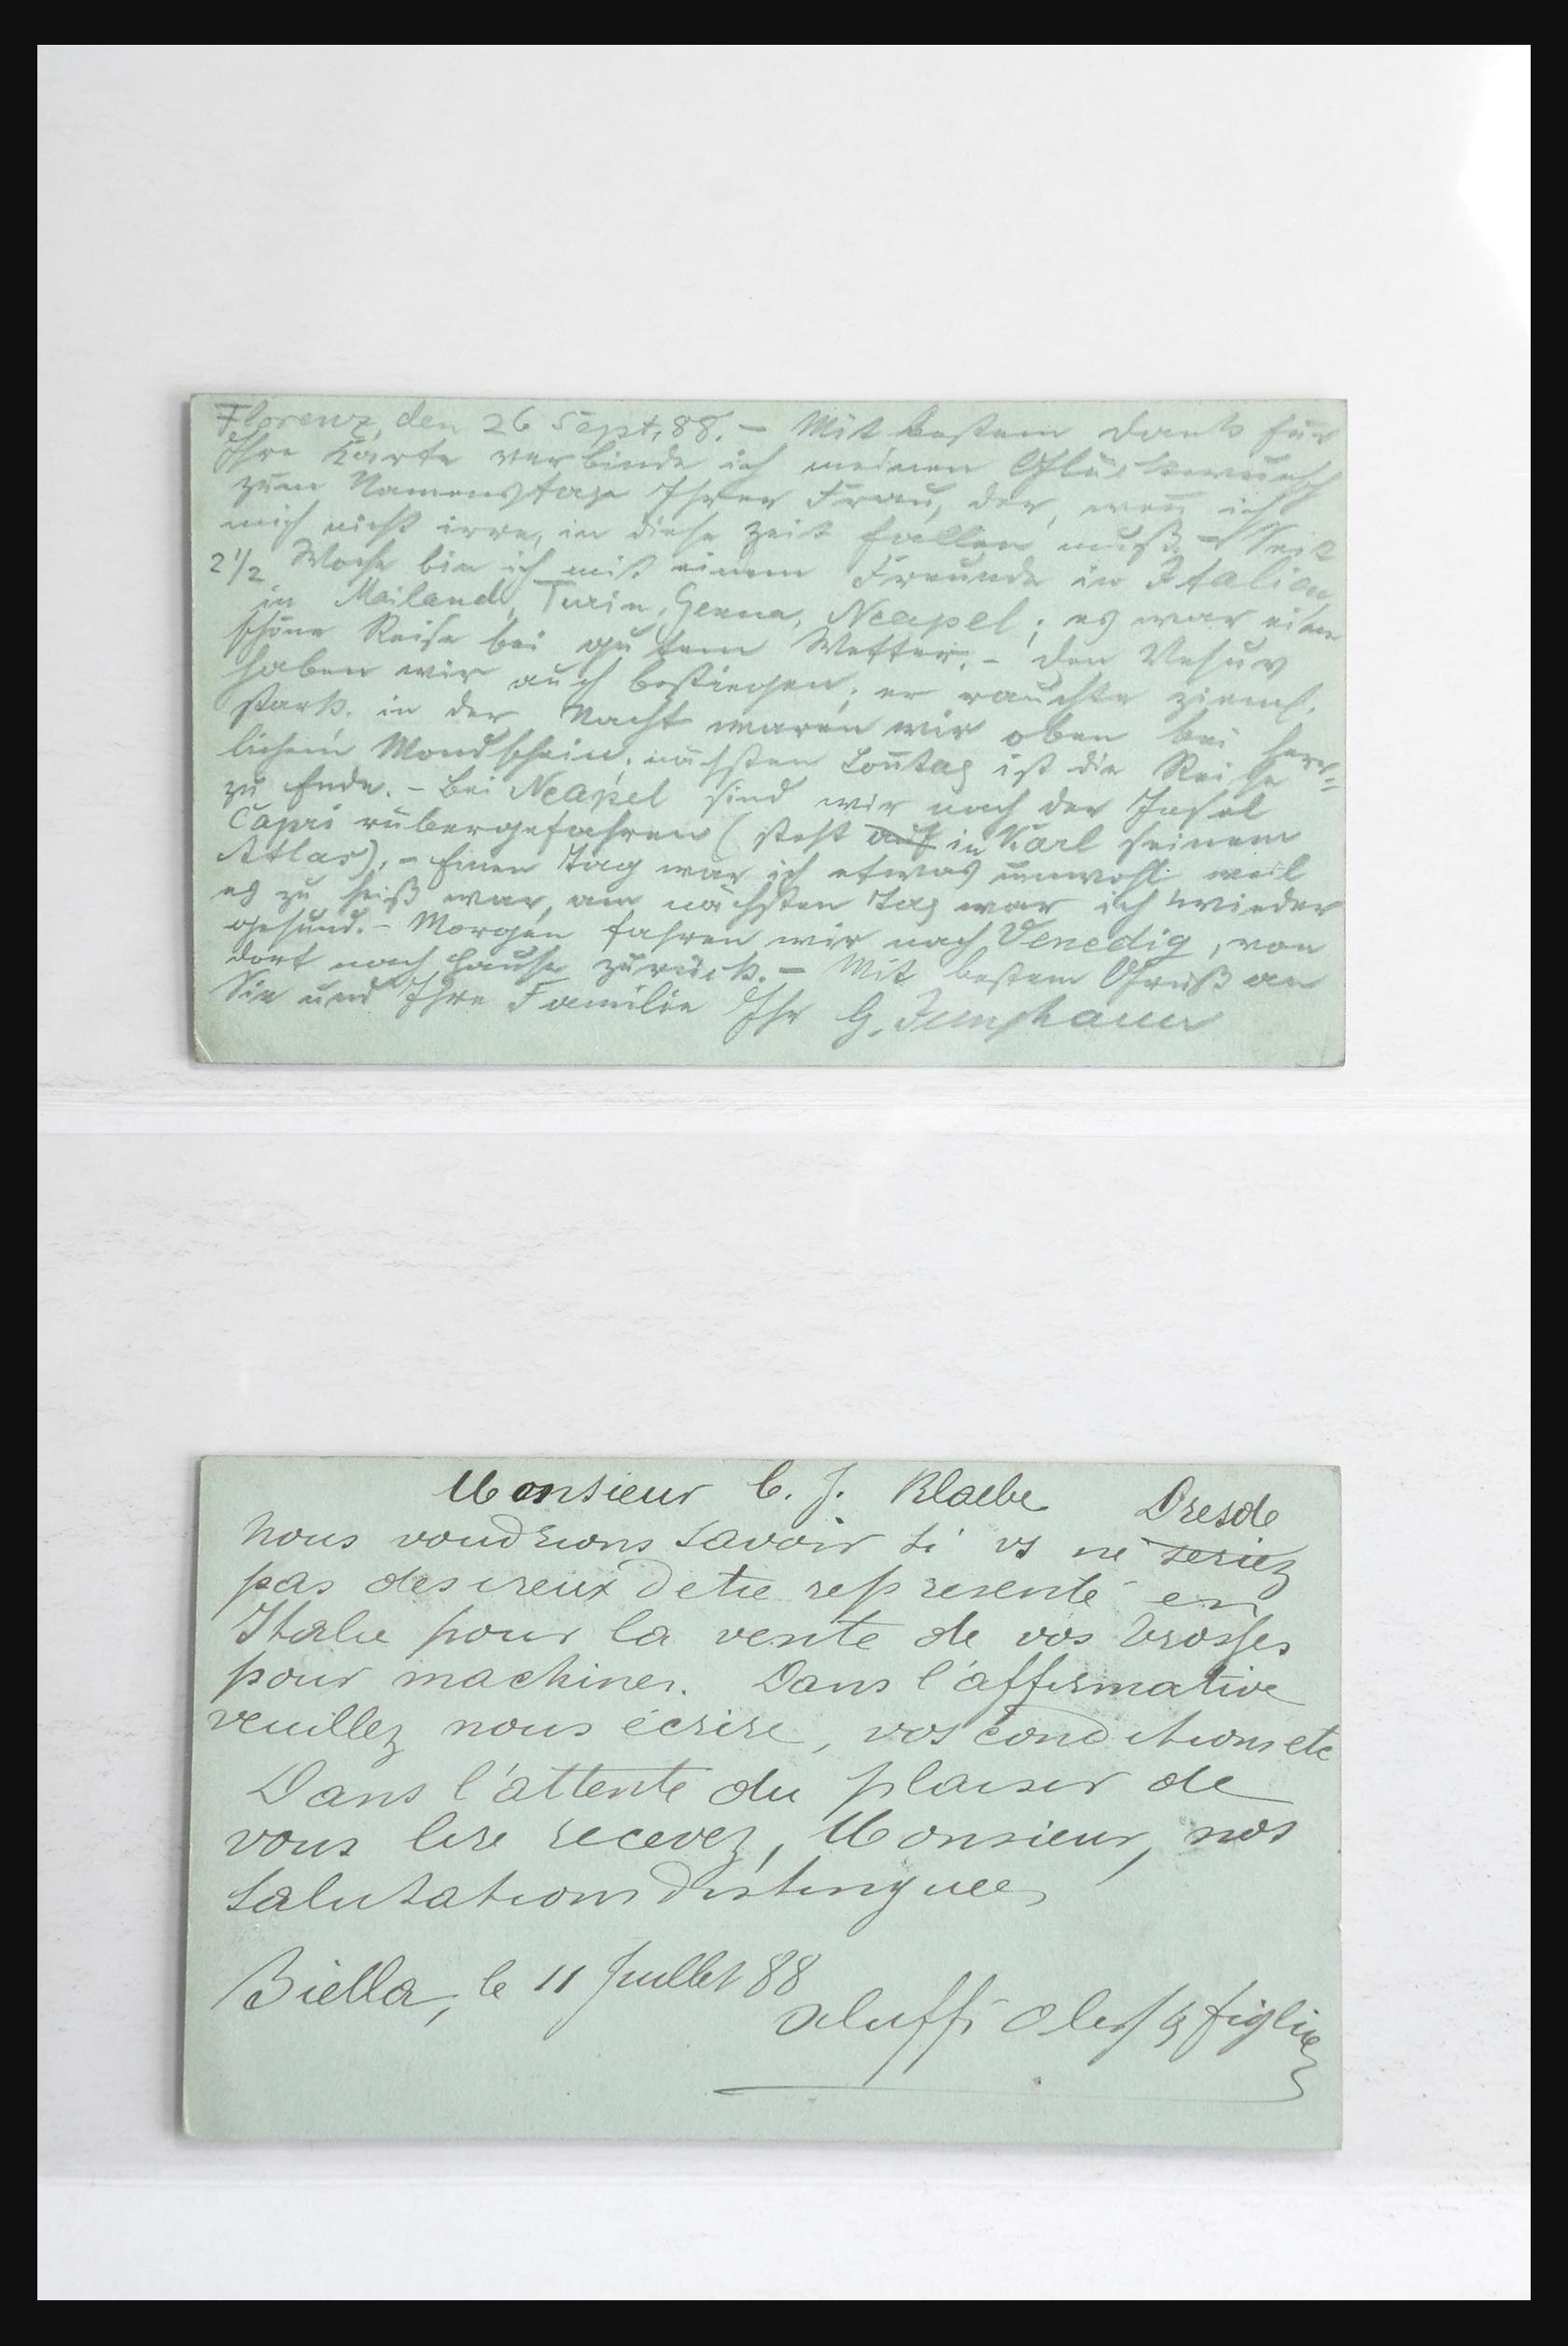 Florenz, den 26 Sept. 88. – Mit bestem Dank für
Ihre Karte verbinde ich meinen Glückwunsch
zum Namenstage Ihrer Frau, der, weñ ich
mich nicht irre, in diese Zeit fallen muß. – Seit
2 1/2 Woche bin ich mit einem Freunde in Italien,
in Mailand, Turin, Genua, Neapel; es war eine
schöne Reise bei gutem Wetter. – Den Vesuv
haben wir auch bestiegen; er rauchte zieml.
stark. in der Nacht waren wir oben bei herr-
lichem Mondschein. nächsten Soñtag ist die Reise
zu Ende. – Bei Neapel sind wir nach der Insel
Capri rübergefahren (steht auf in Karl seinem
Atlas). – Einen Tag war ich etwas unwohl weil
es zu heiß war, am nächsten Tag war ich wieder
gesund. – Morgen fahren wir nach Venedig, von
dort nach Hause zurück. – Mit bestem Gruß an
Sie und Ihre Familie Ihr G.
Monsieur C. J. Dresde
Nous voudrions savoir si vs ne seriez
pas desireux d'etre representé en
Italie pour la vente de vos brosses
pour machines. Dans l'affirmative
veuillez nous écrire, vos conditions etc
Dans l'attente du plaisir de
vous lire recevez, Monsieur, nos
salutations distinguées
Biella, le 11 Juillet 88
figlio